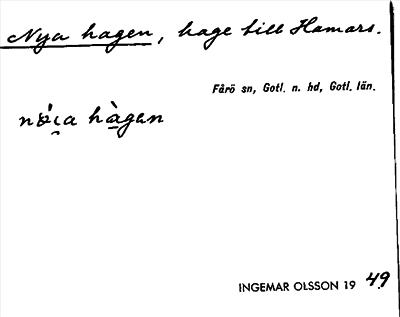 Nya hagen, hage till Hamars.
Fårö sn, Gotl. n. hd, Gotl. län.
hàgen
INGEMAR OLSSON 19 49